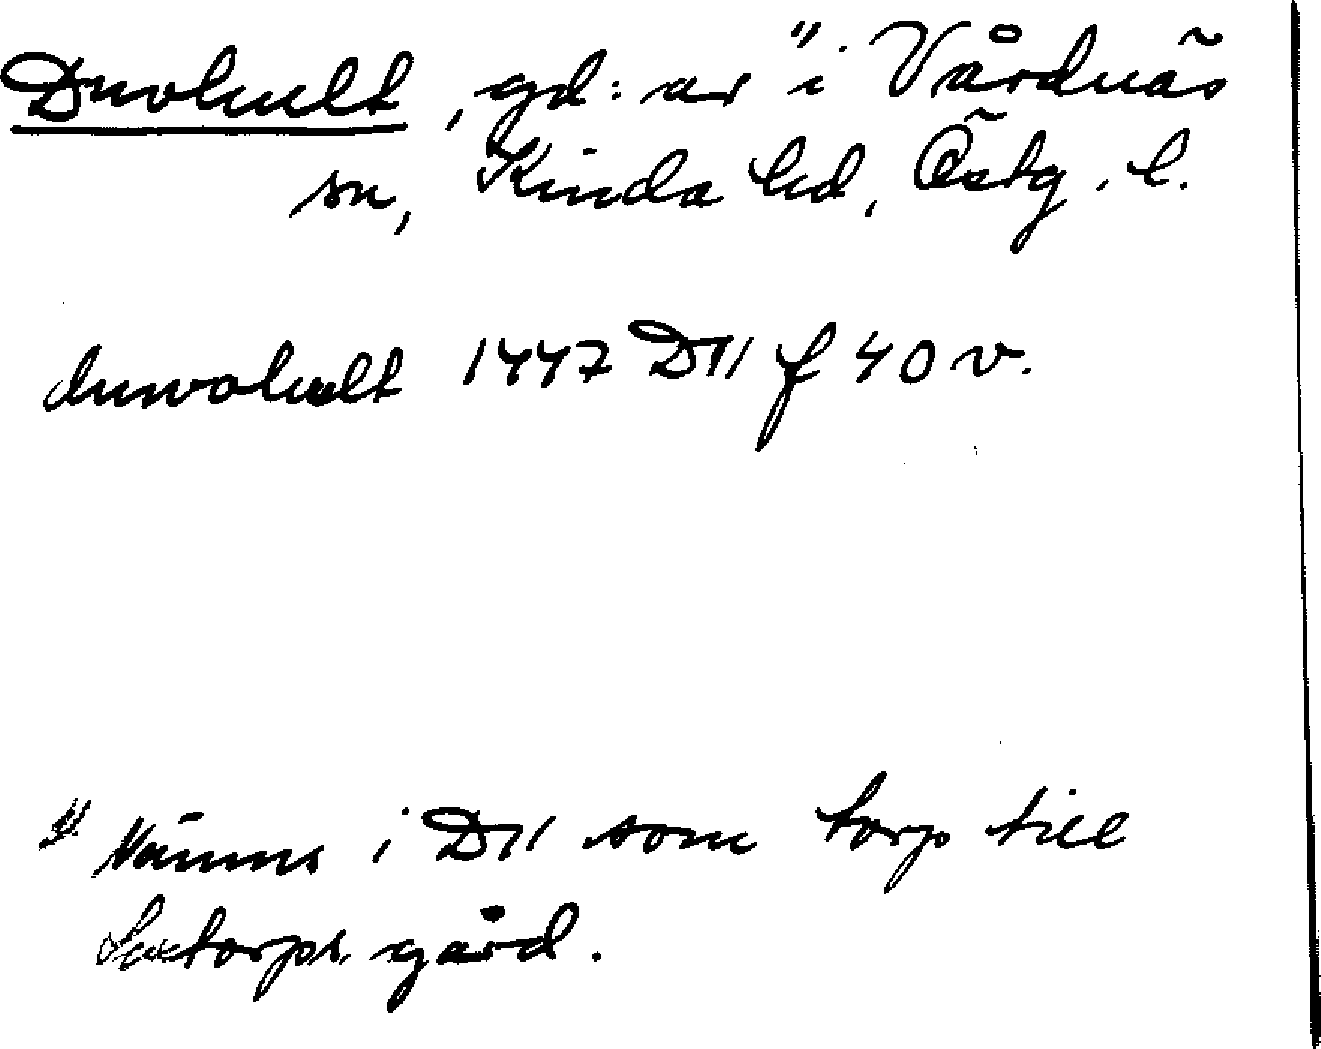 Duvhult, gd: ar ¹⁾ i Vårdnäs
sn, Kinda hd, Östg. l.
duwohult 1447 D11 f 40 v.
¹⁾ Nämns i D11 som torp till
Saxtorps gård.